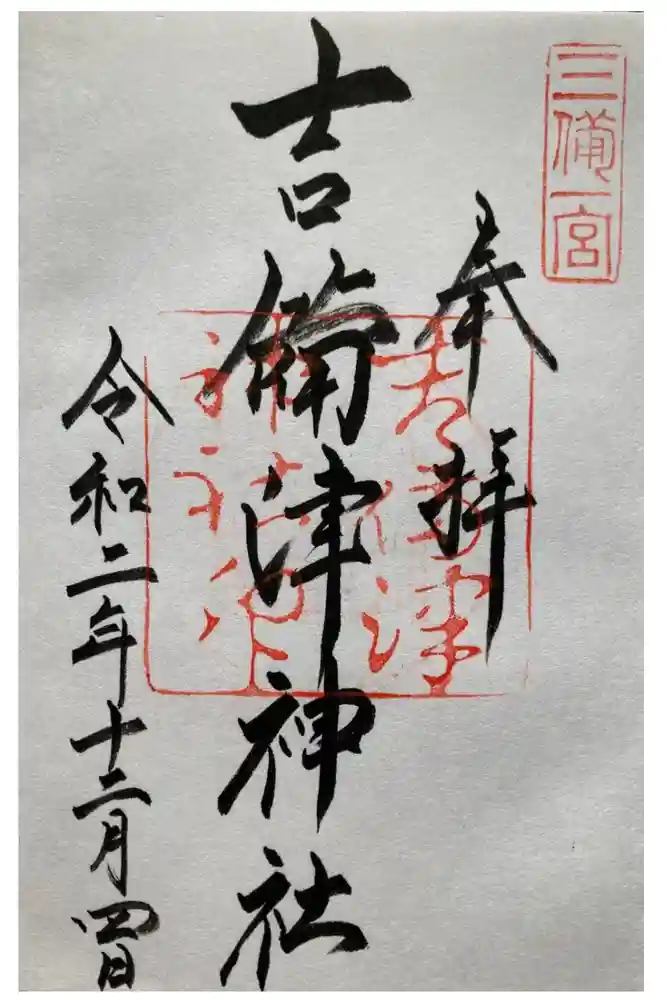 三備一宮
奉拝
吉備津神社
令和二年十二月四日